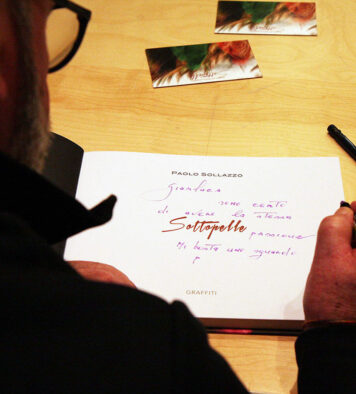 PAOLO SOLLAZZO
Gianluca
sono certo
di avere la stessa
Sottopelle passione
Mi basta uno sguardo
p
GRAFFITI